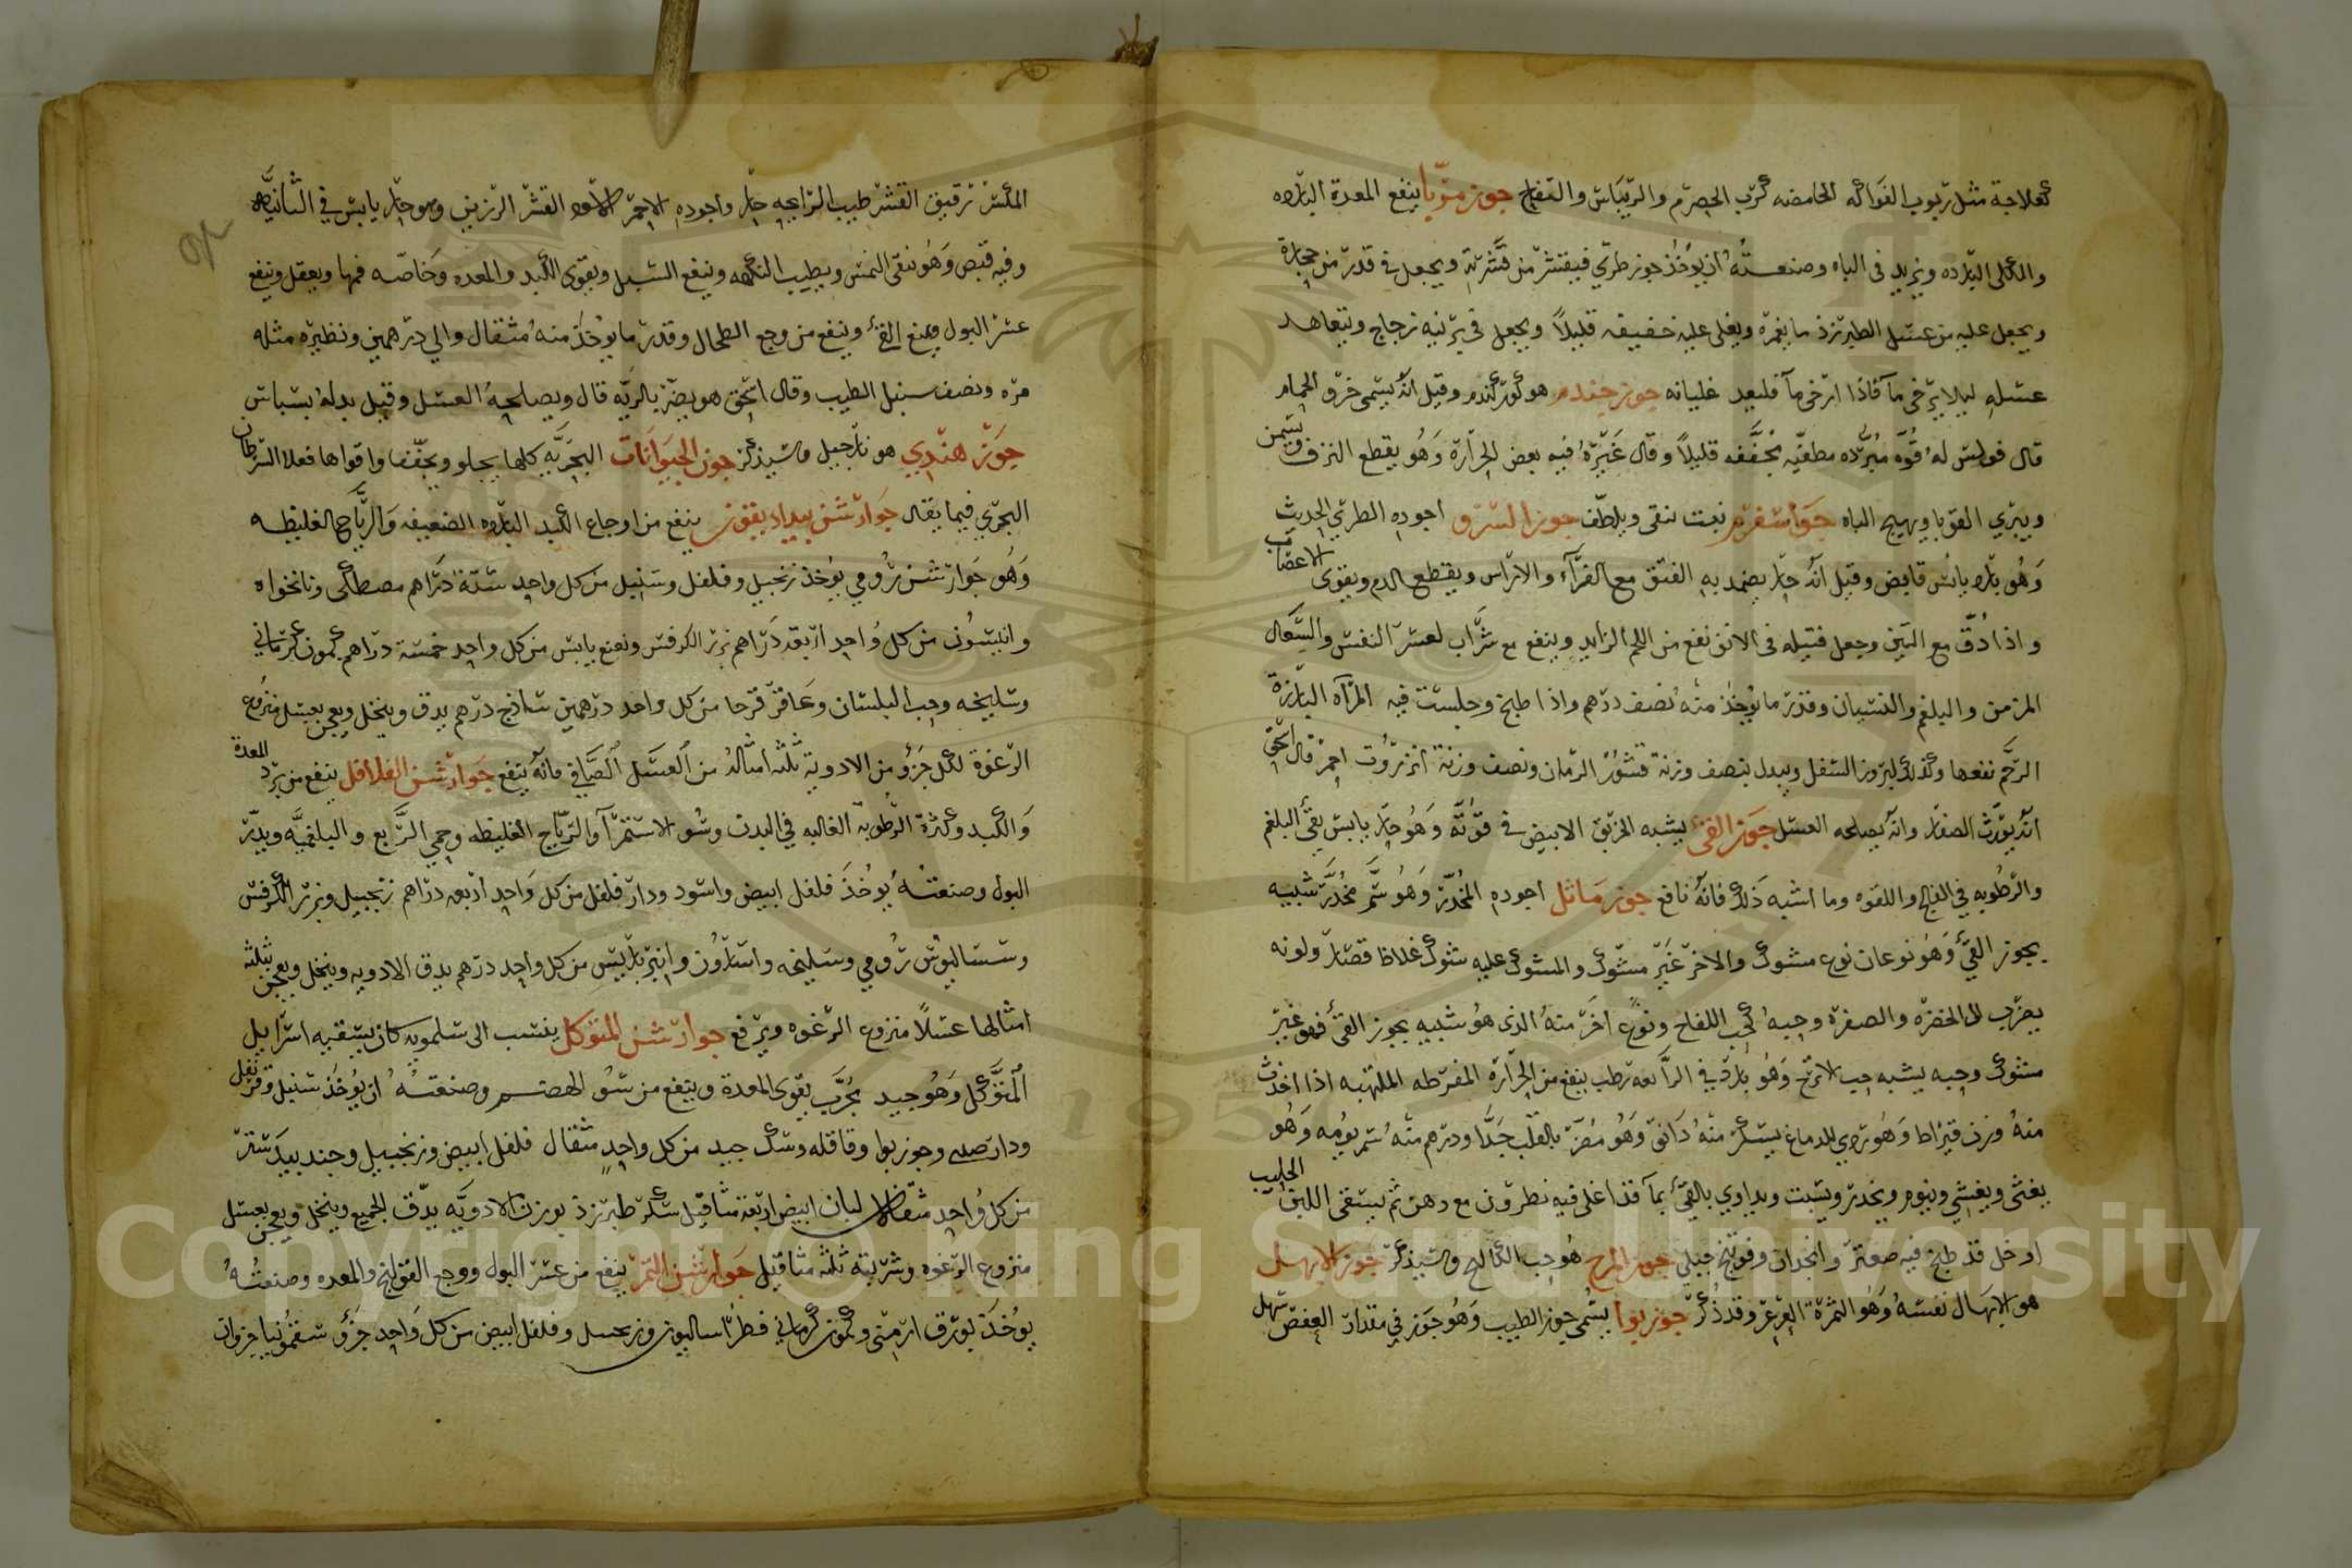 كعلاجة مثل ربوب الفواكه الحامضه كرب الحصرم والريباس والتفاح جوز مربا ينفع المعدة البارده
والكلى البارده ويزيد في الباه وصنعته ان يوخذ جوز طري فيقشر من قشريه ويجعل في قدر من حجارة
ويجعل عليه من عسل الطبرزذ ما يغمره ويغلى عليه خفيفه قليلاً ويجعل في برنيه زجاج ويتعاهد
عسله ليلا يرخى مآ فاذا ارخى مآ فليعد غليانه جوز جندم هو كوز كندم وقيل انه يسمى خرو الحمام
قال فولس له قوه مبرده مطفيه مجففه قليلاً وقال غيره فيه بعض الحرارة وهو يقطع النزف ويسمن
ويبري القوبا ويهيج الباه نبت ينقى ويلطف جوز السرو اجوده الطري الحديث
وهو بارد يابس قابض وقيل انه حار يضمد به الفتق مع الغرآء والاتراس ويقطع الدم ويقوى الاعصاب
واذا دق مع التين وجعل فتيله في الانف نفع من اللحم الزايد وينفع مع شراب لعسر النفس والسعال
المزمن والبلغم والنسيان وقدر ما يوخذ منه نصف درهم واذا طبخ وجلست فيه المرآه البارزة
الرحم نفعها وكذلك لبروز السفل ويبدل بنصف وزنة قشور الرمان ونصف وزنة انزروت احمر قال اسحق
انه يورث الصفار وانه يصلحه العسل جوز القئ يشبه الخربق الابيض في قوته وهو حار يابس يقئ البلغم
والرطوبه في الفالج واللقوه وما اشبه ذلك فانه نافع جوز ماثل اجوده المخدر وهو سم مخدر شبيه
بجوز القئ وهو نوعان نوع مشوك والاخر غير مشوك والمشوك عليه شوك غلاظ قصار ولونه
يضرب الى الخضرة والصفرة وحبه كحب اللفاح ونوع اخر منه الذى هو شبيه بجوز القئ فهو غير
مشوك وحبه يشبه حب الاترج وهو بارد في الرابعه رطب ينفع من الحرارة المفرطه الملتهبه اذا اخذت
منه وزن قيراط وهو ردي للدماغ يسكر منه دانق وهو مضر بالقلب جدا ودرهم منه سم يومه وهو
يغثى ويغشي وينوم ويخدر ويسبت ويداوي بالقئ بمآ قد اغلى فيه نطرون مع دهن ثم يسقى اللبن الحليب
ادخل قد طبخ فيه صعتر وانجدان وفوتنج جبلي جوز المرج هو حب الكاكنج وسيذكر جوز الابهل
هو الابهال نفسه وهو الثمرة العرعر وقد ذكر جوز بوا يسمى جوز الطيب وهو جوز في مقدار العفص سهل
المكسر رقيق القشر طيب الرايحه حار واجوده الاحمر الاسود القشر الرزين وهو حار يابس في الثانيه
وفيه قبض وهو ينقى النمش ويطيب النكهه وينفع السبل ويقوى الكبد والمعده وخاصه فمها ويعقل وينفع
عسر البول ويمنع القئ وينفع من وجع الطحال وقدر ما يوخذ منه مثقال والي درهمين ونظيره مثله
مره ونصف سنبل الطيب وقال اسحق هو يضر بالريه قال ويصلحه العسل وقيل بدله بسباس
جوز هندي هو نارجيل وسيذكر جوز الحيوانات البحريه كلها يجلو ويجفف واقواها فعلا السرطان
البحري فيما يقال ينفع من اوجاع الكبد البارده الضعيفه والرياح الغليظه
وهو جوارشن رومي يوخذ زنجبيل وفلفل وسنبل من كل واحد ستة دراهم مصطكى ونانخواه
وانيسون من كل واحد اربعه دراهم بزر الكرفس ونعنع يابس من كل واحد خمسة دراهم كمون كرماني
وسليخه وحب البلسان وعاقر قرحا من كل واحد درهمين ساذج درهم يدق وينخل ويعجن بعسل منزوع
الرغوة لكل جزؤ من الادوية ثلثه امثاله من العسل الصافي فانه ينفع جوارشن الفلافل ينفع من برد المعدة
والكبد وكثرة الرطوبه الغالبه في البدن وسو الاستمرآ والرياح الغليظه وحمي الربع والبلغميه ويدر
البول وصنعته يوخذ فلفل ابيض واسود ودار فلفل من كل واحد اربعه دراهم زنجبيل وبزر الكرفس
وسساليوس رومي وسليخه واسارون وانبرباريس من كل واحد درهم يدق الادويه وينخل ويعجن بثلثه
امثالها عسلاً منزوع الرغوه ويرفع جوارشن المتوكل ينسب الى سلمويه كان يسقيه اسرايل
المتوكل وهو جيد مجرب يقوى المعدة وينفع من سو الهضم وصنعته ان يوخذ سنبل وقرنفل
ودارصيني وجوزبوا وقاقله وسك جيد من كل واحد مثقال فلفل ابيض وزنجبيل وجندبيدستر
من كل واحد مثقالان لبان ابيض اربعة مثاقيل سكر طبرزذ بوزن الادويه يدق الجميع وينخل ويعجن بعسل
منزوع الرغوه وشربته ثلثه مثاقيل جوارشن التمر ينفع من عسر البول ووجع القولنج والمعده وصنعته
يوخذ بورق ارمنى وكمون كرماني فطراساليون وزنجبيل وفلفل ابيض من كل واحد جزؤ سقمونيا جزوان